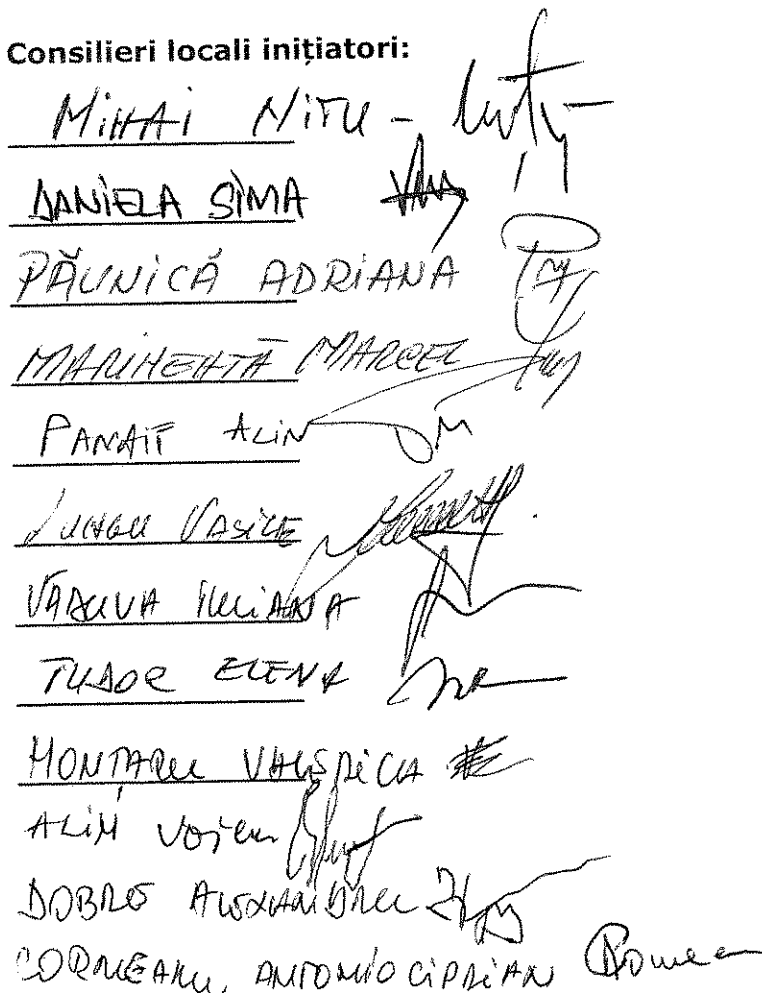 Consilieri locali inițiatori:
MIHAI NIȚU -
DANIELA SIMA
PĂUNICĂ ADRIANA
MARINEAȚĂ MARCEL
PANAIT ALIN
LUNGU VASILE
VĂDUVA IULIANA
TUDOR ELENA
MONȚARU VALERICA
ALIN VOICU
DOBRE ALEXANDRU
CORNEANU, ANTONIO CIPRIAN